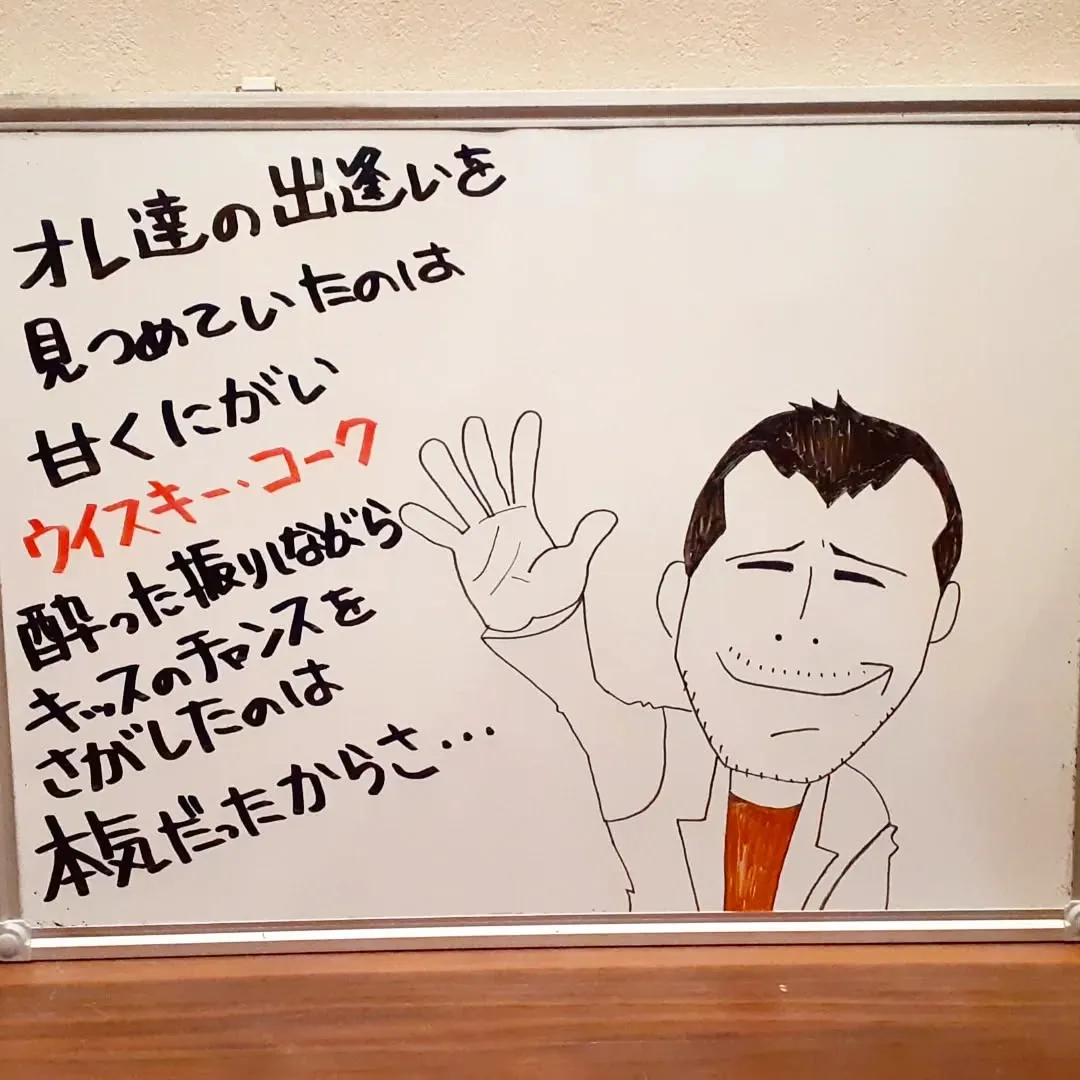 オレ達の出逢いを
見つめていたのは
甘くにがい
ウイスキー、コーク
酔った振りしながら
キッスのチャンスを
さがしたのは
本気だったからさ…